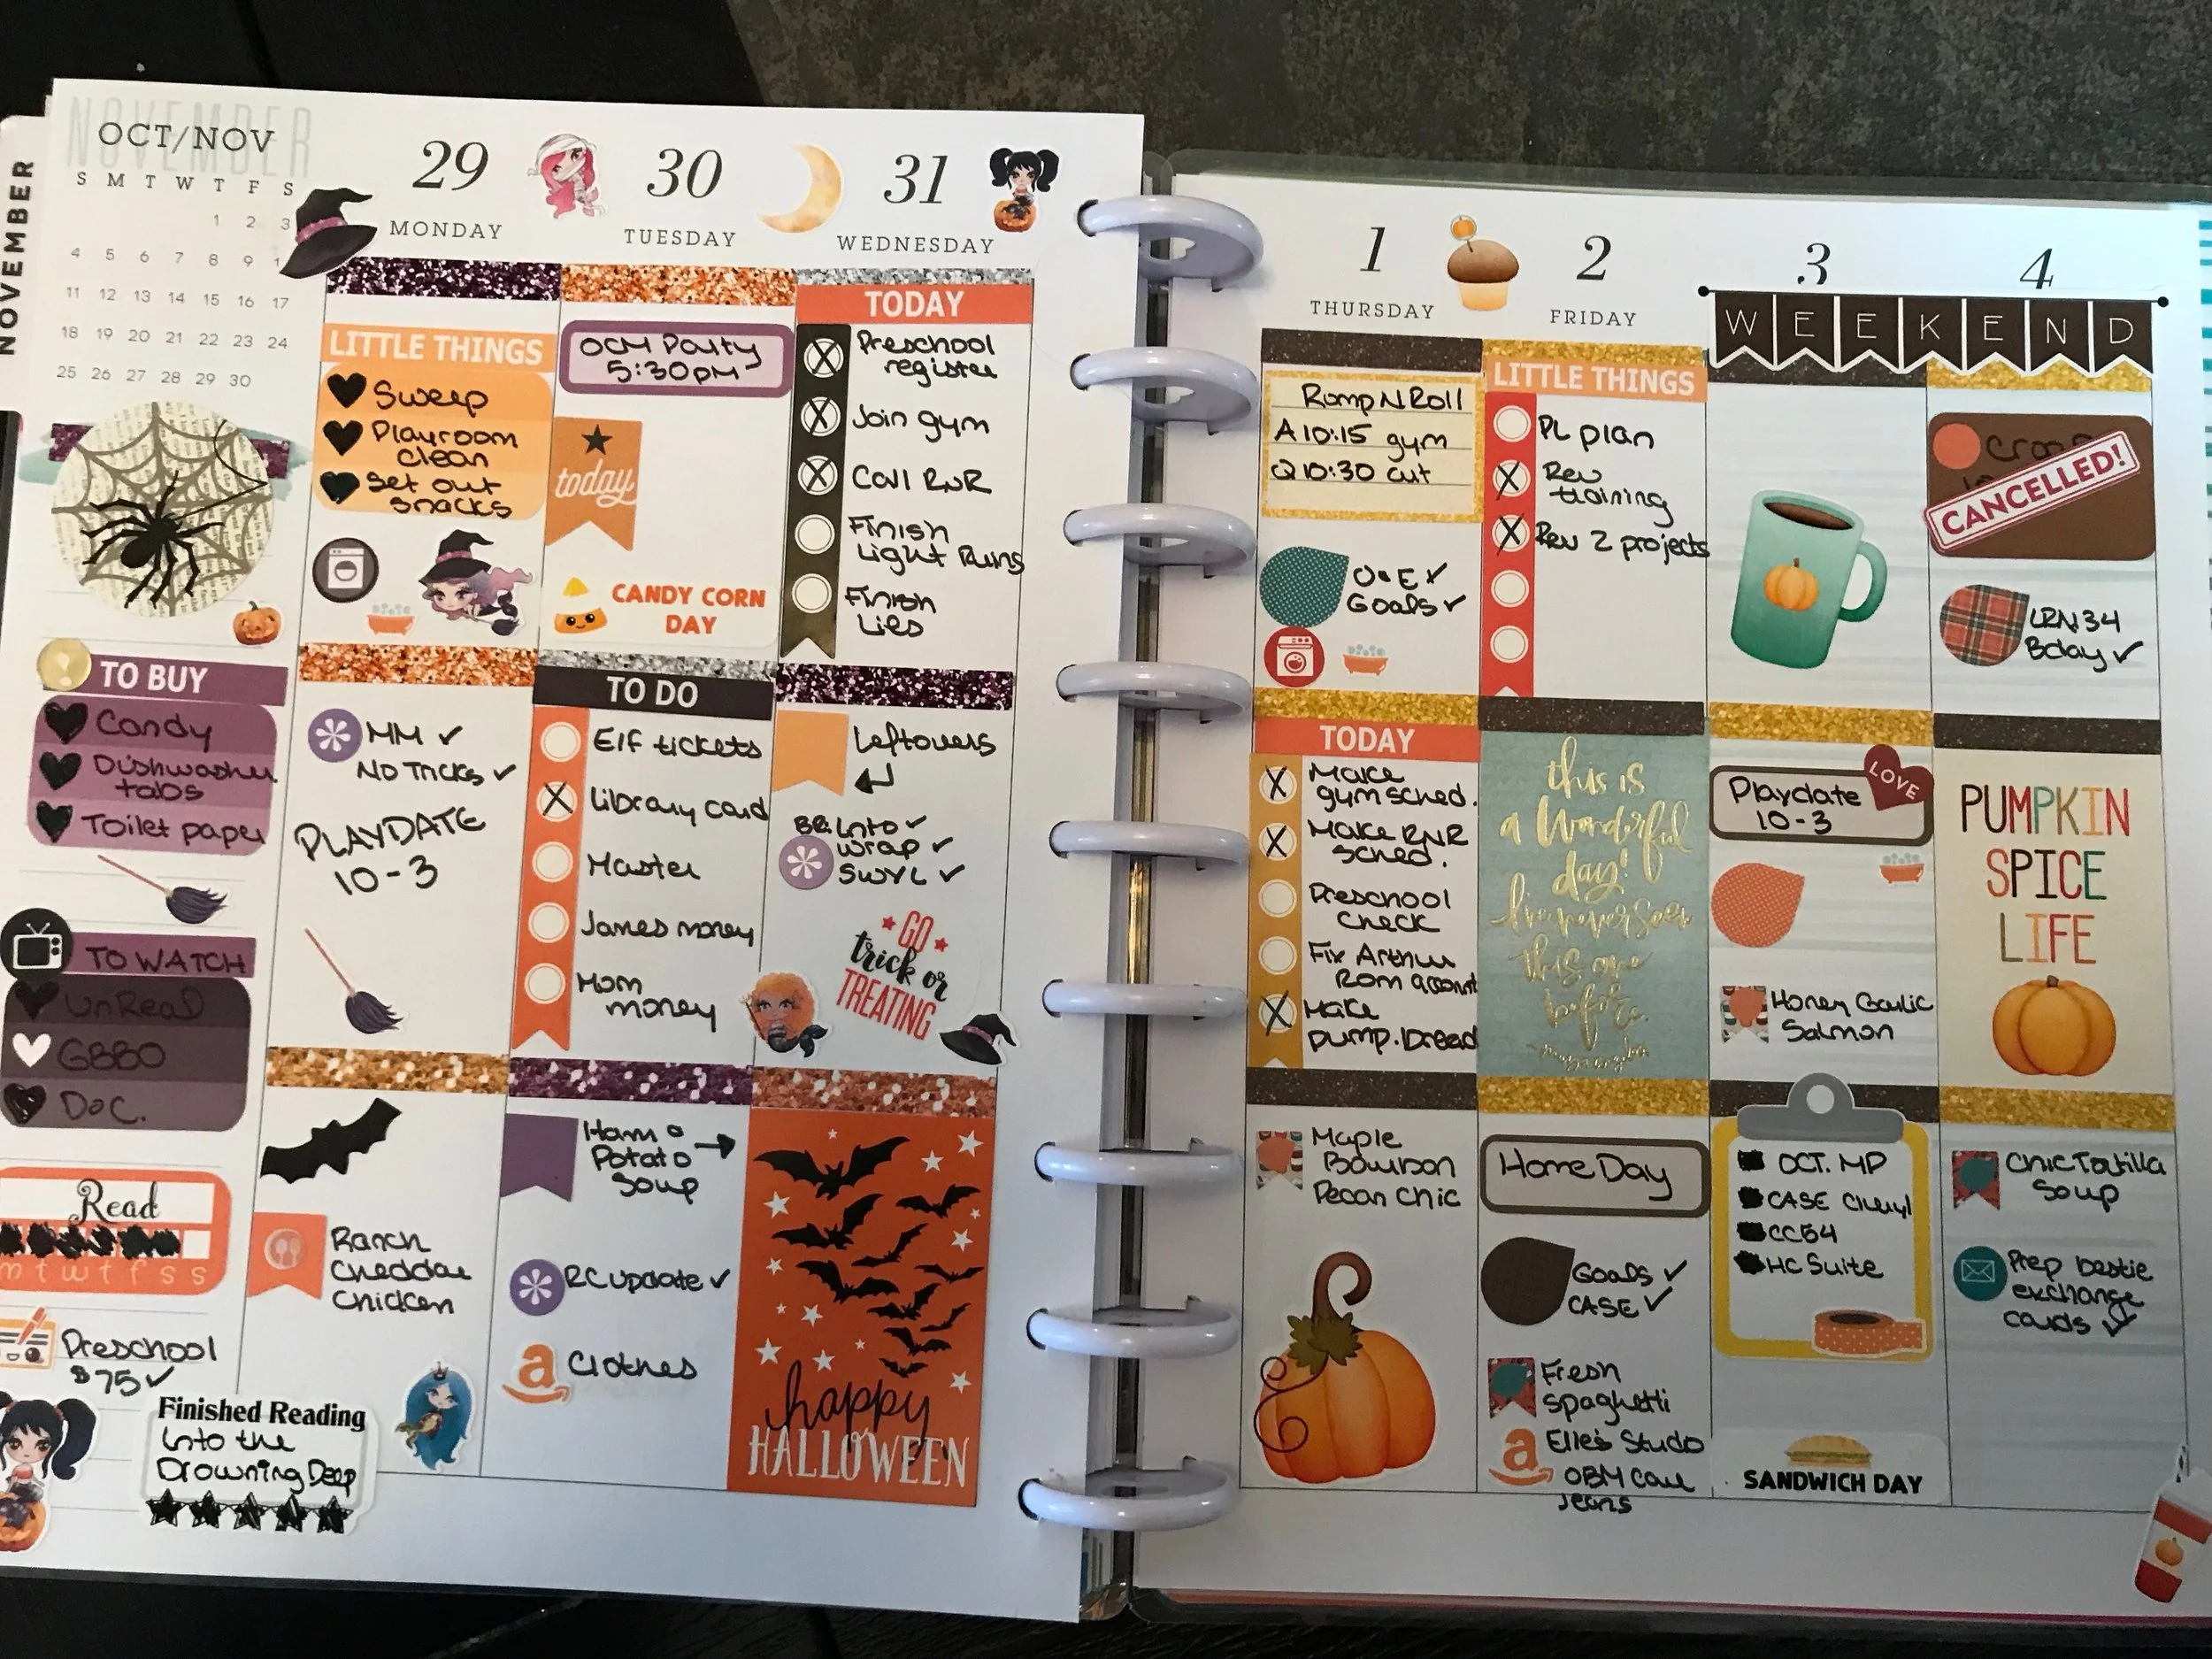 NOVEMBER
NOVEMBER
OCT/NOV
S M T W T F S
1 2 3
4 5 6 7 8 9
11 12 13 14 15 16 17
18 19 20 21 22 23 24
25 26 27 28 29 30
TO BUY
Candy
Dishwasher
tabs
Toilet paper
TO WATCH
UnReal
GBBO
Doc.
Read
m t w t f s s
Preschool
$75 ✓
Finished Reading
Into the
Drowning Deep
29
MONDAY
LITTLE THINGS
Sweep
Playroom
clean
Set out
snacks
MM ✓
No Tricks ✓
PLAYDATE
10-3
Ranch
Cheddar
Chicken
30
TUESDAY
OCM Party
5:30pm
today
CANDY CORN
DAY
TO DO
Elf tickets
Library card
Master
James money
Mom
money
Ham &
Potato
Soup
RC update ✓
a Clothes
31
WEDNESDAY
TODAY
Preschool
register
Join gym
Call RNR
Finish
Light Ruins
Finish
Lies
Leftovers
BB Into ✓
wrap ✓
SWYL ✓
GO
trick or
TREATING
happy
HALLOWEEN
1
THURSDAY
Romp N Roll
A 10:15 gym
Q 10:30 cut
O+E ✓
Goals ✓
TODAY
Make
gym sched.
Make RNR
sched.
Preschool
Check
Fix Arthur
Rom account
Make
pump. bread
Maple
Bourbon
Pecan Chic
2
FRIDAY
LITTLE THINGS
PL plan
Rev
training
Rev 2 projects
this is
a Wonderful
day!
I've never seen
this one
before.
Home Day
Goals ✓
CASE ✓
Fresh
Spaghetti
a Elle's Studio
OBM Cou
Jeans
3
4
WEEKEND
Playdate
10-3
LOVE
Honey Garlic
Salmon
OCT. MP
CASE Cheryl
CC54
HC Suite
SANDWICH DAY
CANCELLED!
LRN 34
Bday ✓
PUMPKIN
SPICE
LIFE
Chic Tortilla
Soup
Prep bestie
exchange
cards ✓